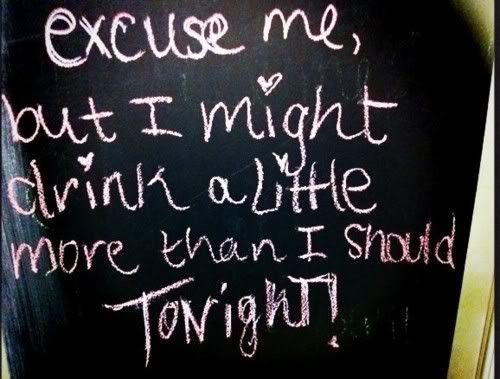 excuse me,
but I might
drink a little
more than I should
TONight!